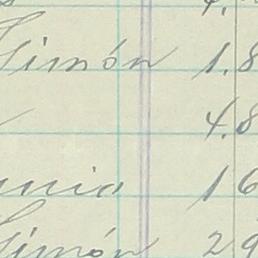 Simón 1.8
4.8
unia 16
Simón 29